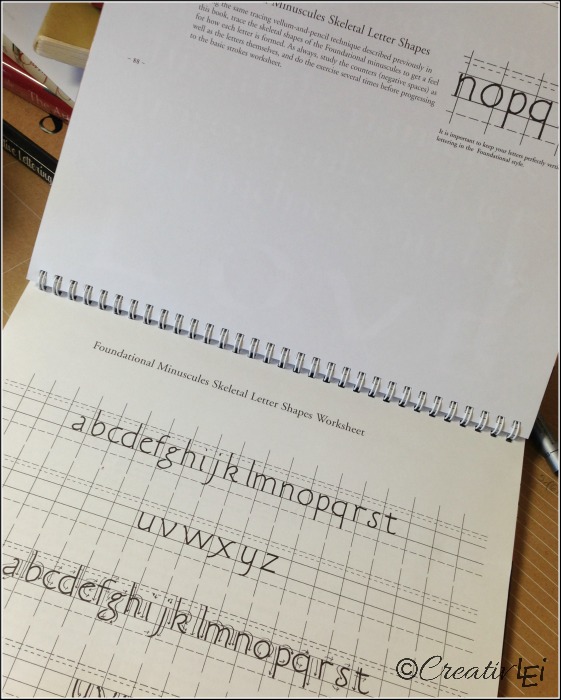 Minuscules Skeletal Letter Shapes
the same tracing vellum-and-pencil technique described previously in
this book, trace the skeletal shapes of the Foundational minuscules to get a feel
for how each letter is formed. As always, study the counters (negative spaces) as
well as the letters themselves, and do the exercise several times before progressing
to the basic strokes worksheet.
- 88 -
nopq
It is important to keep your letters perfectly
lettering in the Foundational style.
Foundational Minuscules Skeletal Letter Shapes Worksheet
abcdefghijklmnopqrst
uvwxyz
abcdefghijklmnopqrst
uv
©CreativLEi